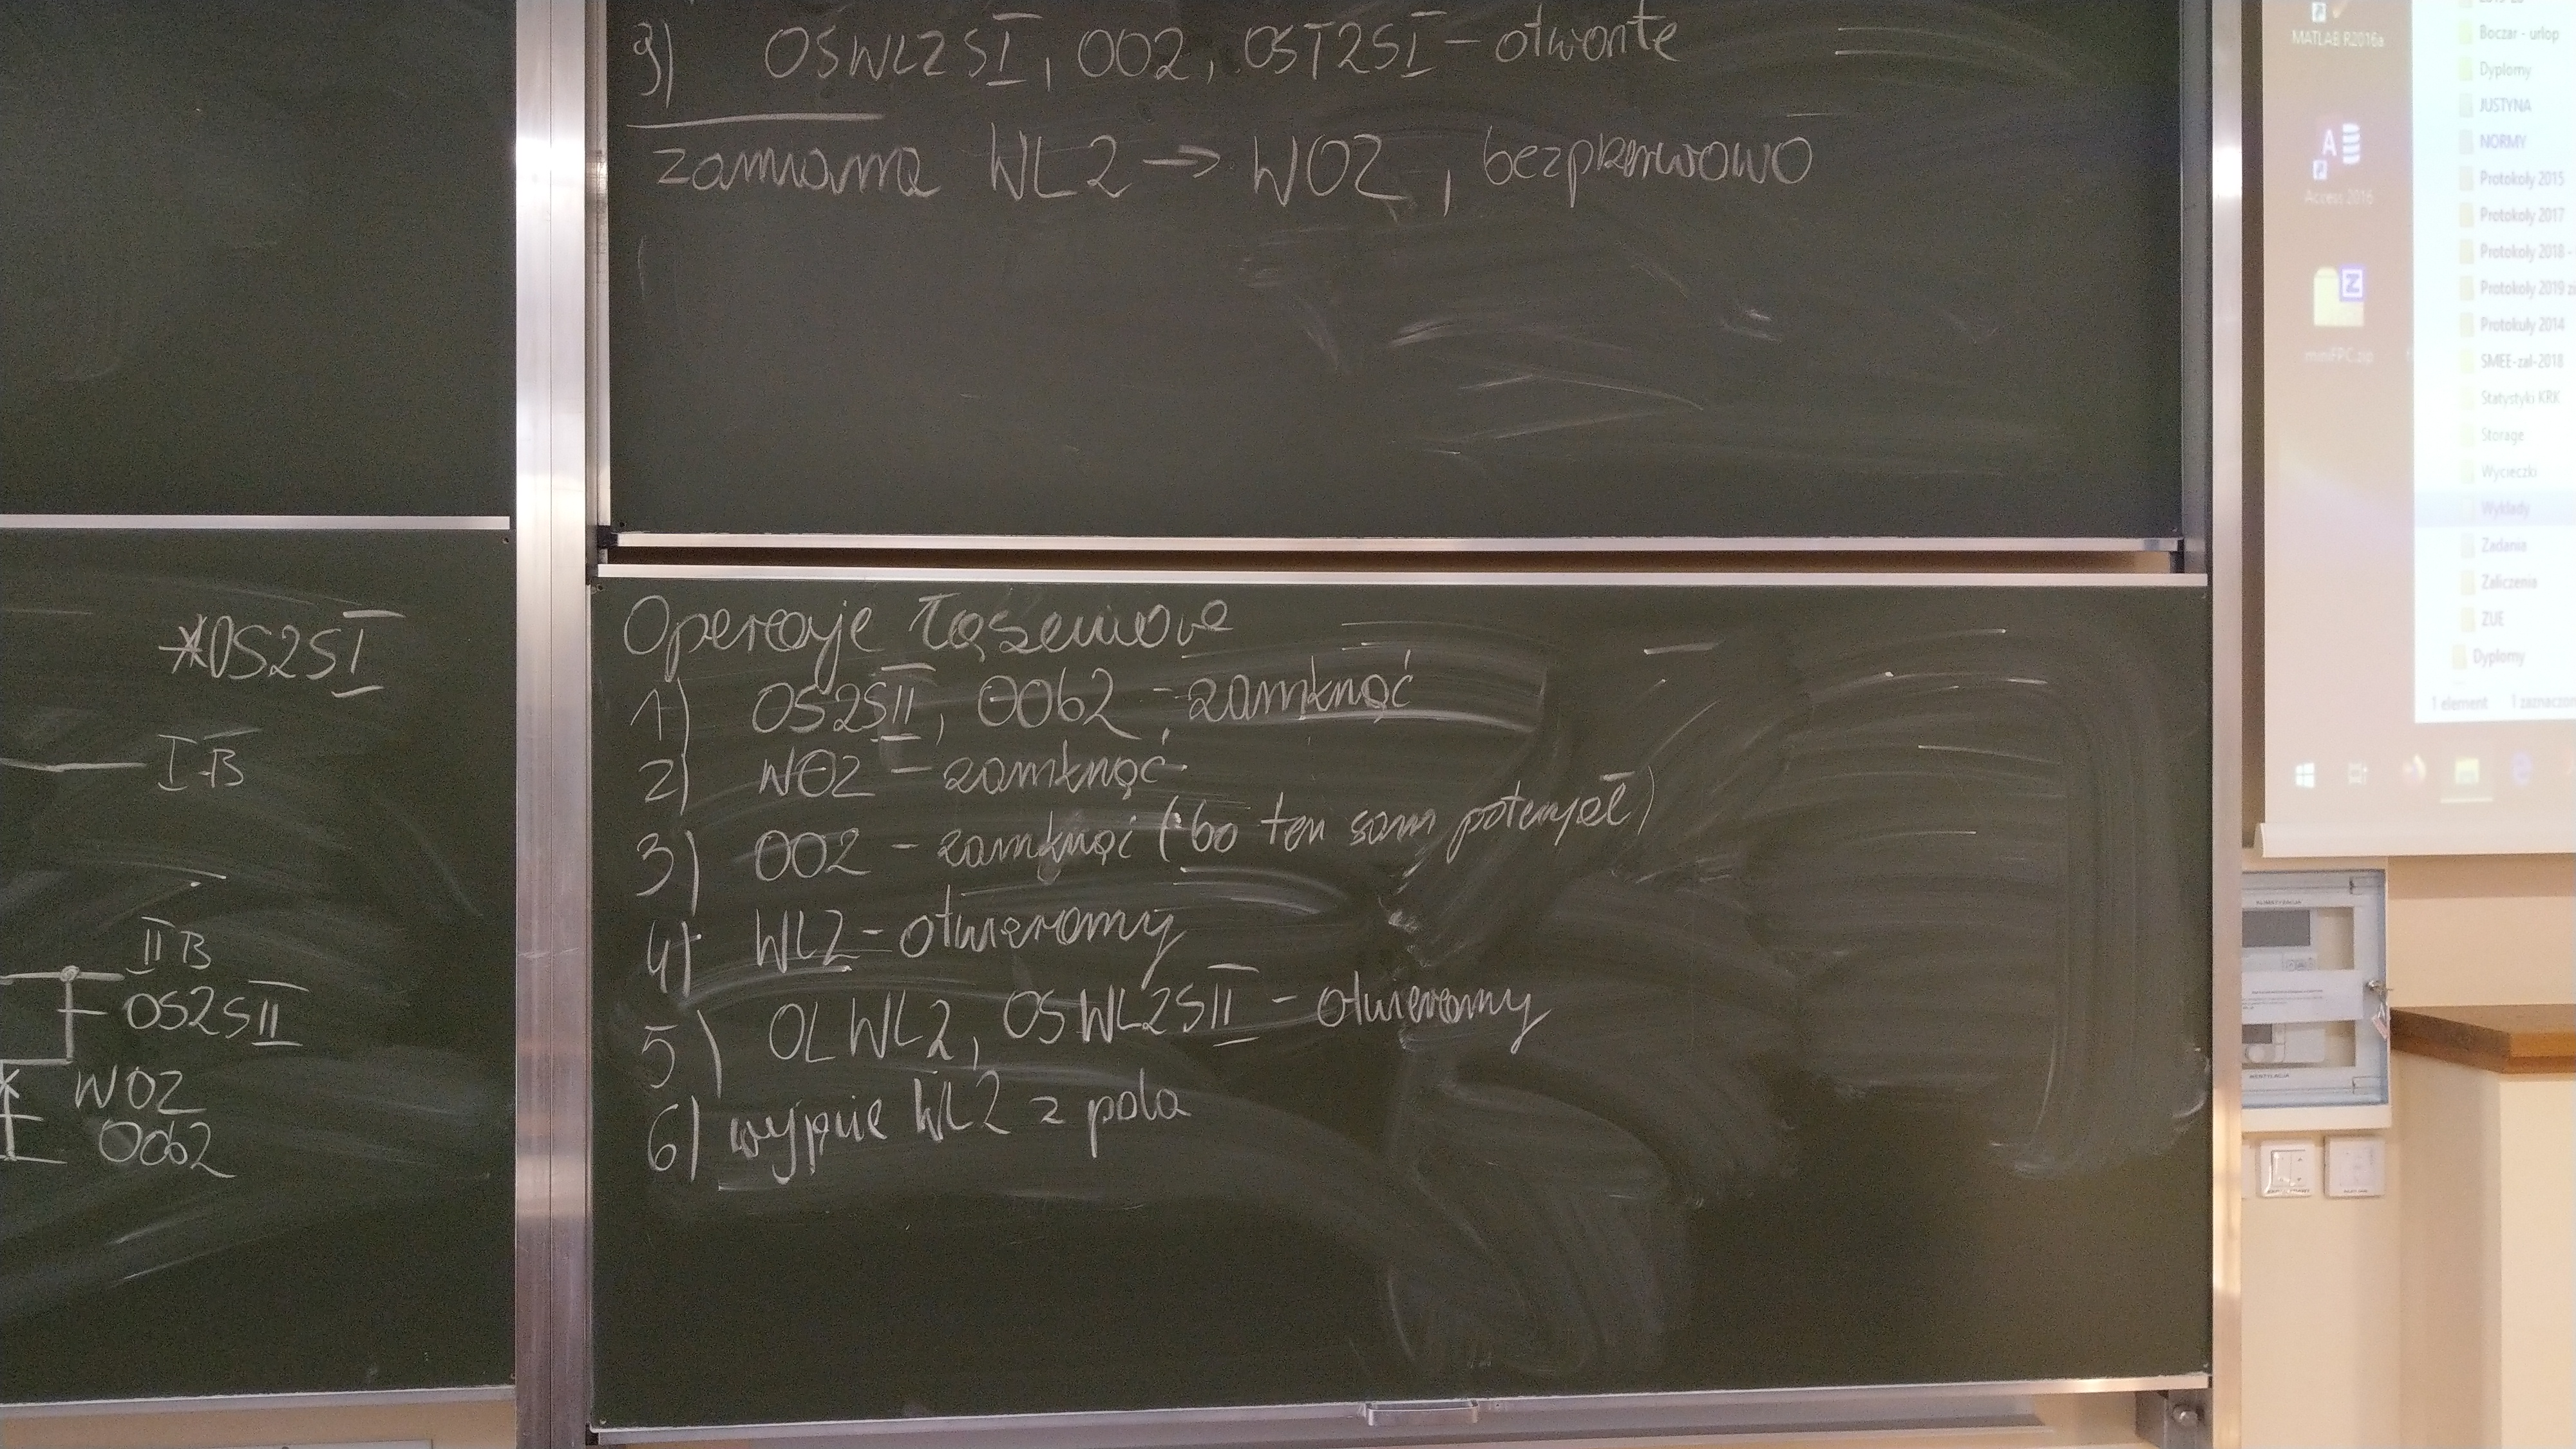 9) OSWL2SI, OO2, OST2SI – otwarte
zamiana WL2 → WO2, bezprzerwowo
*OS2SI
I B
II B
OS2SII
WO2
OOb2
Operacje łączeniowe
1) OS2SII, OOb2 – zamknąć
2) WO2 – zamknąć
3) OO2 – zamknąć (bo ten sam potencjał)
4) WL2 – otwieramy
5) OLWL2, OSWL2SII – otwieramy
6) wypnie WL2 z pola
MATLAB R2016a
Access 2016
miniFPC.zip
Boczar - urlop
Dyplomy
JUSTYNA
NORMY
Protokoły 2015
Protokoły 2017
Protokoły 2018 -
Protokoły 2019 zi
Protokuły 2014
SMEE-zal-2018
Statystyki KRK
Storage
Wycieczki
Wykłady
Zadania
Zaliczenia
ZUE
Dyplomy
1 element 1 zaznaczon
KLIMATYZACJA
WENTYLACJA